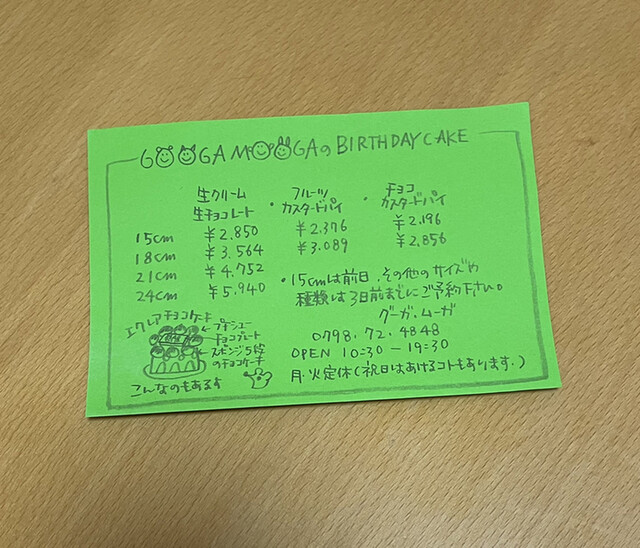 GOOGA MOOGAの BIRTHDAY CAKE
生クリーム
生チョコレート
・フルーツ
カスタードパイ
・チョコ
カスタードパイ
15cm ¥2.850 ¥2.376 ¥2.196
18cm ¥3.564 ¥3.089 ¥2,856
21cm ¥4.752
24cm ¥5.940
・15cmは前日、その他のサイズや
種類は3日前までにご予約下さい。
グーガ・ムーガ
0798.72.4848
OPEN 10:30-19:30
月.火定休(祝日はあけるコトもあります.)
エクレアチョコケーキ
←プチシュー
←チョコプレート
スポンジ5段
のチョコケーキ
こんなのもあるす